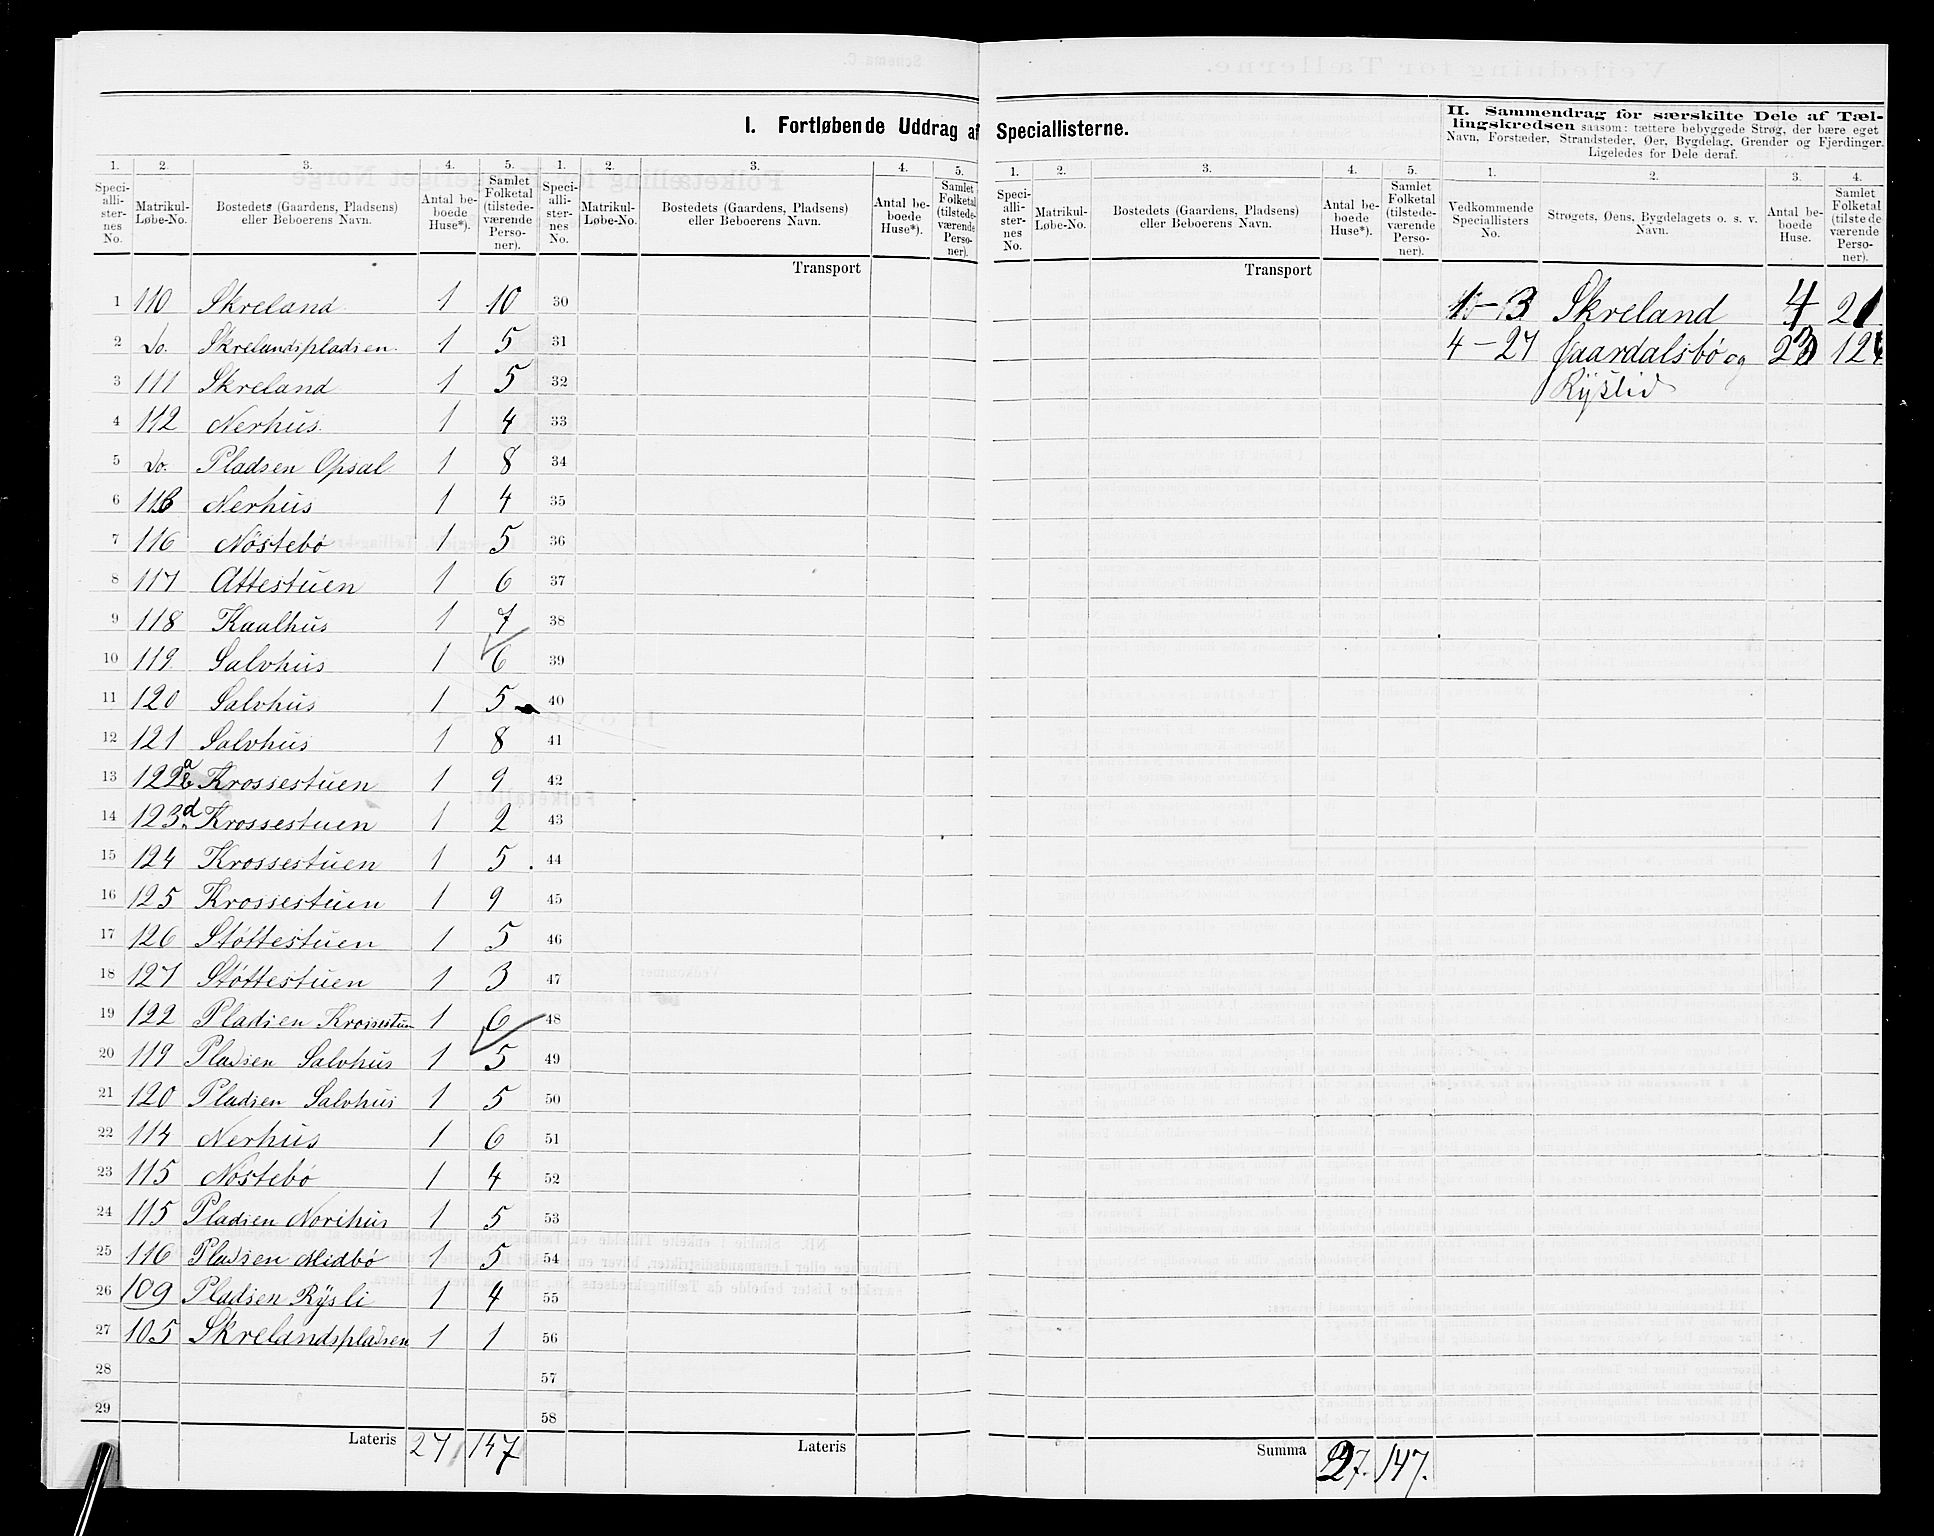 I. Fortløbende Uddrag af Speciallisterne.
II. Sammendrag for særskilte Dele af Tællingskredsen saasom: tættere bebyggede Strøg, der bære eget
Navn, Forstæder, Strandsteder, Øer, Bygdelag, Grender og Fjerdinger.
Ligeledes for Dele deraf.
1. 2. 3. 4. 5. 1. 2. 3. 4. 5. 1. 2. 3. 4. 5. 1. 2. 3. 4.
Speciallisternes No. Matrikul-Løbe-No. Bostedets (Gaardens, Pladsens) eller Beboerens Navn. Antal beboede Huse*). Samlet Folketal (tilstedeværende Personer).
Speciallisternes No. Matrikul-Løbe-No. Bostedets (Gaardens, Pladsens) eller Beboerens Navn. Antal beboede Huse*). Samlet Folketal (tilstedeværende Personer).
Speciallisternes No. Matrikul-Løbe-No. Bostedets (Gaardens, Pladsens) eller Beboerens Navn. Antal beboede Huse*). Samlet Folketal (tilstedeværende Personer).
Vedkommende Speciallisters No. Strøgets, Øens, Bygdelagets o. s. v. Navn. Antal beboede Huse. Samlet Folketal (tilstedeværende Personer).
Transport Transport
1 110 Skreland 1 10 30 Skreland 4
2 do. Skrelandspladsen 1 5 31 4-27 Gaardalsbø og
3 111 Skreland 1 5 32 Rÿslid
4 112 Nerhus 1 4 33
5 do. Pladsen Opsal 1 8 34
6 Nerhus 1 4 35
7 116 Nöstebö 1 5 36
8 117 Attestuen 1 6 37
9 118 Kaalhus 1 7 38
10 119 Salvhus 1 6 39
11 120 Salvhus 1 5 40
12 121 Salvhus 1 8 41
13 Krossestuen 1 9 42
14 123d Krossestuen 1 2 43
15 124 Krossestuen 1 5 44
16 125 Krossestuen 1 9 45
17 126 Støttestuen 1 5 46
18 127 Støttestuen 1 3 47
19 122 Pladsen Krossestuen 1 6 48
20 119 Pladsen Salvhus 1 5 49
21 120 Pladsen Salvhus 1 5 50
22 114 Nerhus 1 6 51
23 115 Nöstebö 1 4 52
24 115 Pladsen Norihus 1 5 53
25 116 Pladsen Midbö 1 5 54
26 109 Pladsen Rÿsli 1 4 55
27 105 Skrelandspladsen 1 1 56
28 57
29 58
Lateris 27 147 Lateris Summa 27. 147.